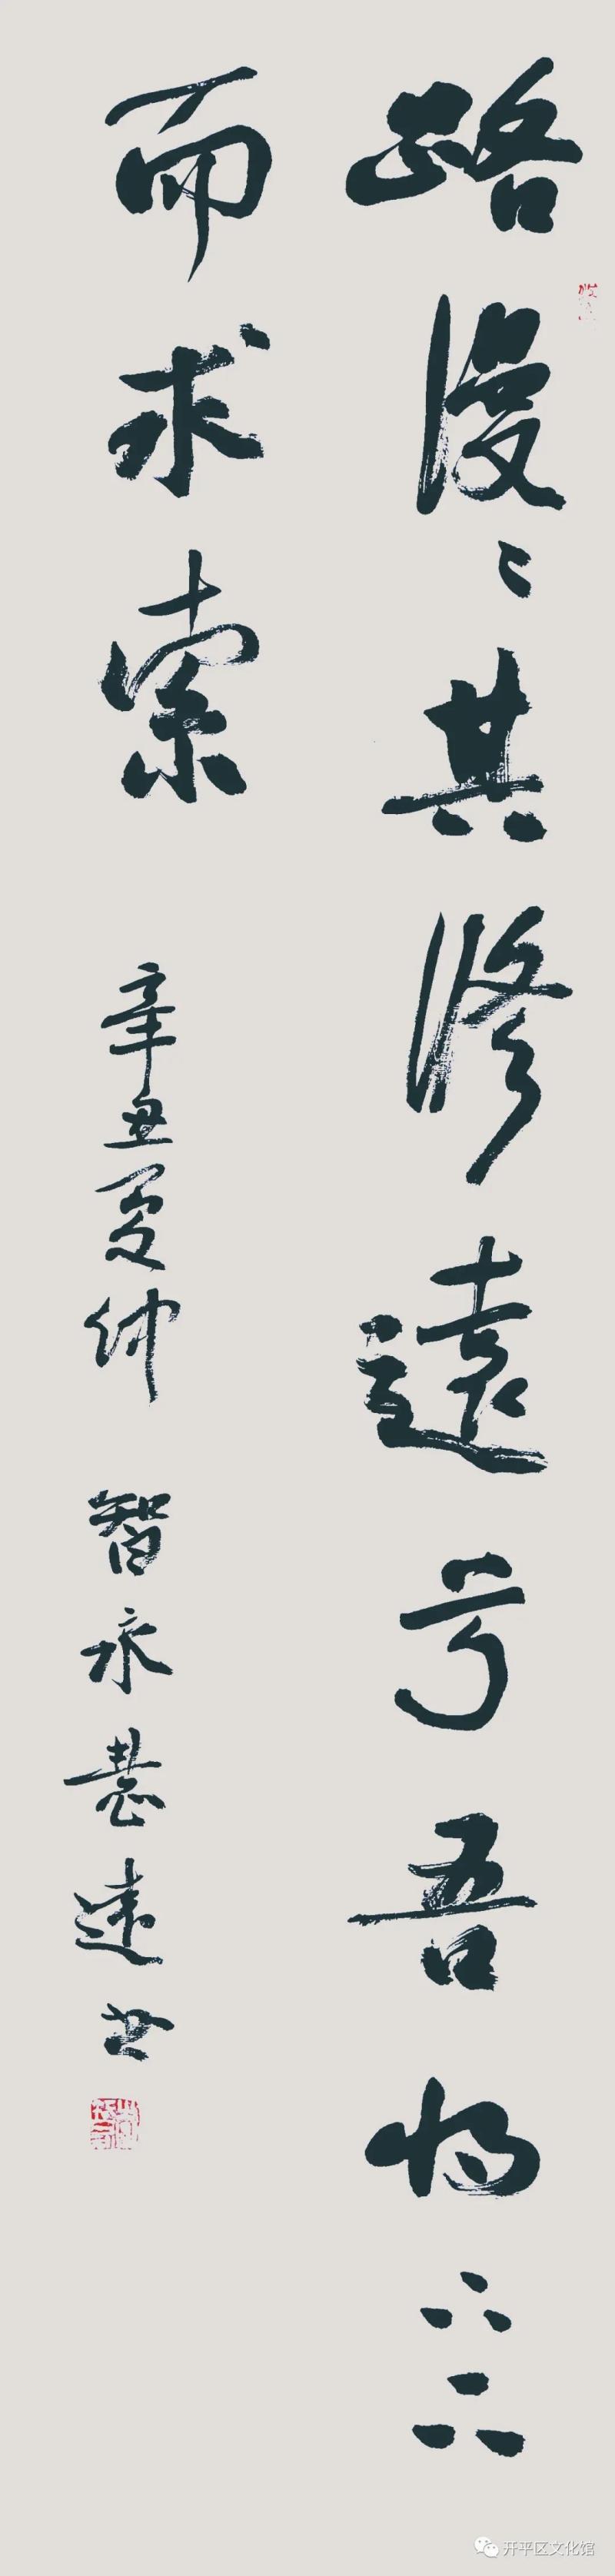 路漫漫其修遠兮吾将上下
而求索 辛丑夏仲 智永慧遠书
开平区文化馆